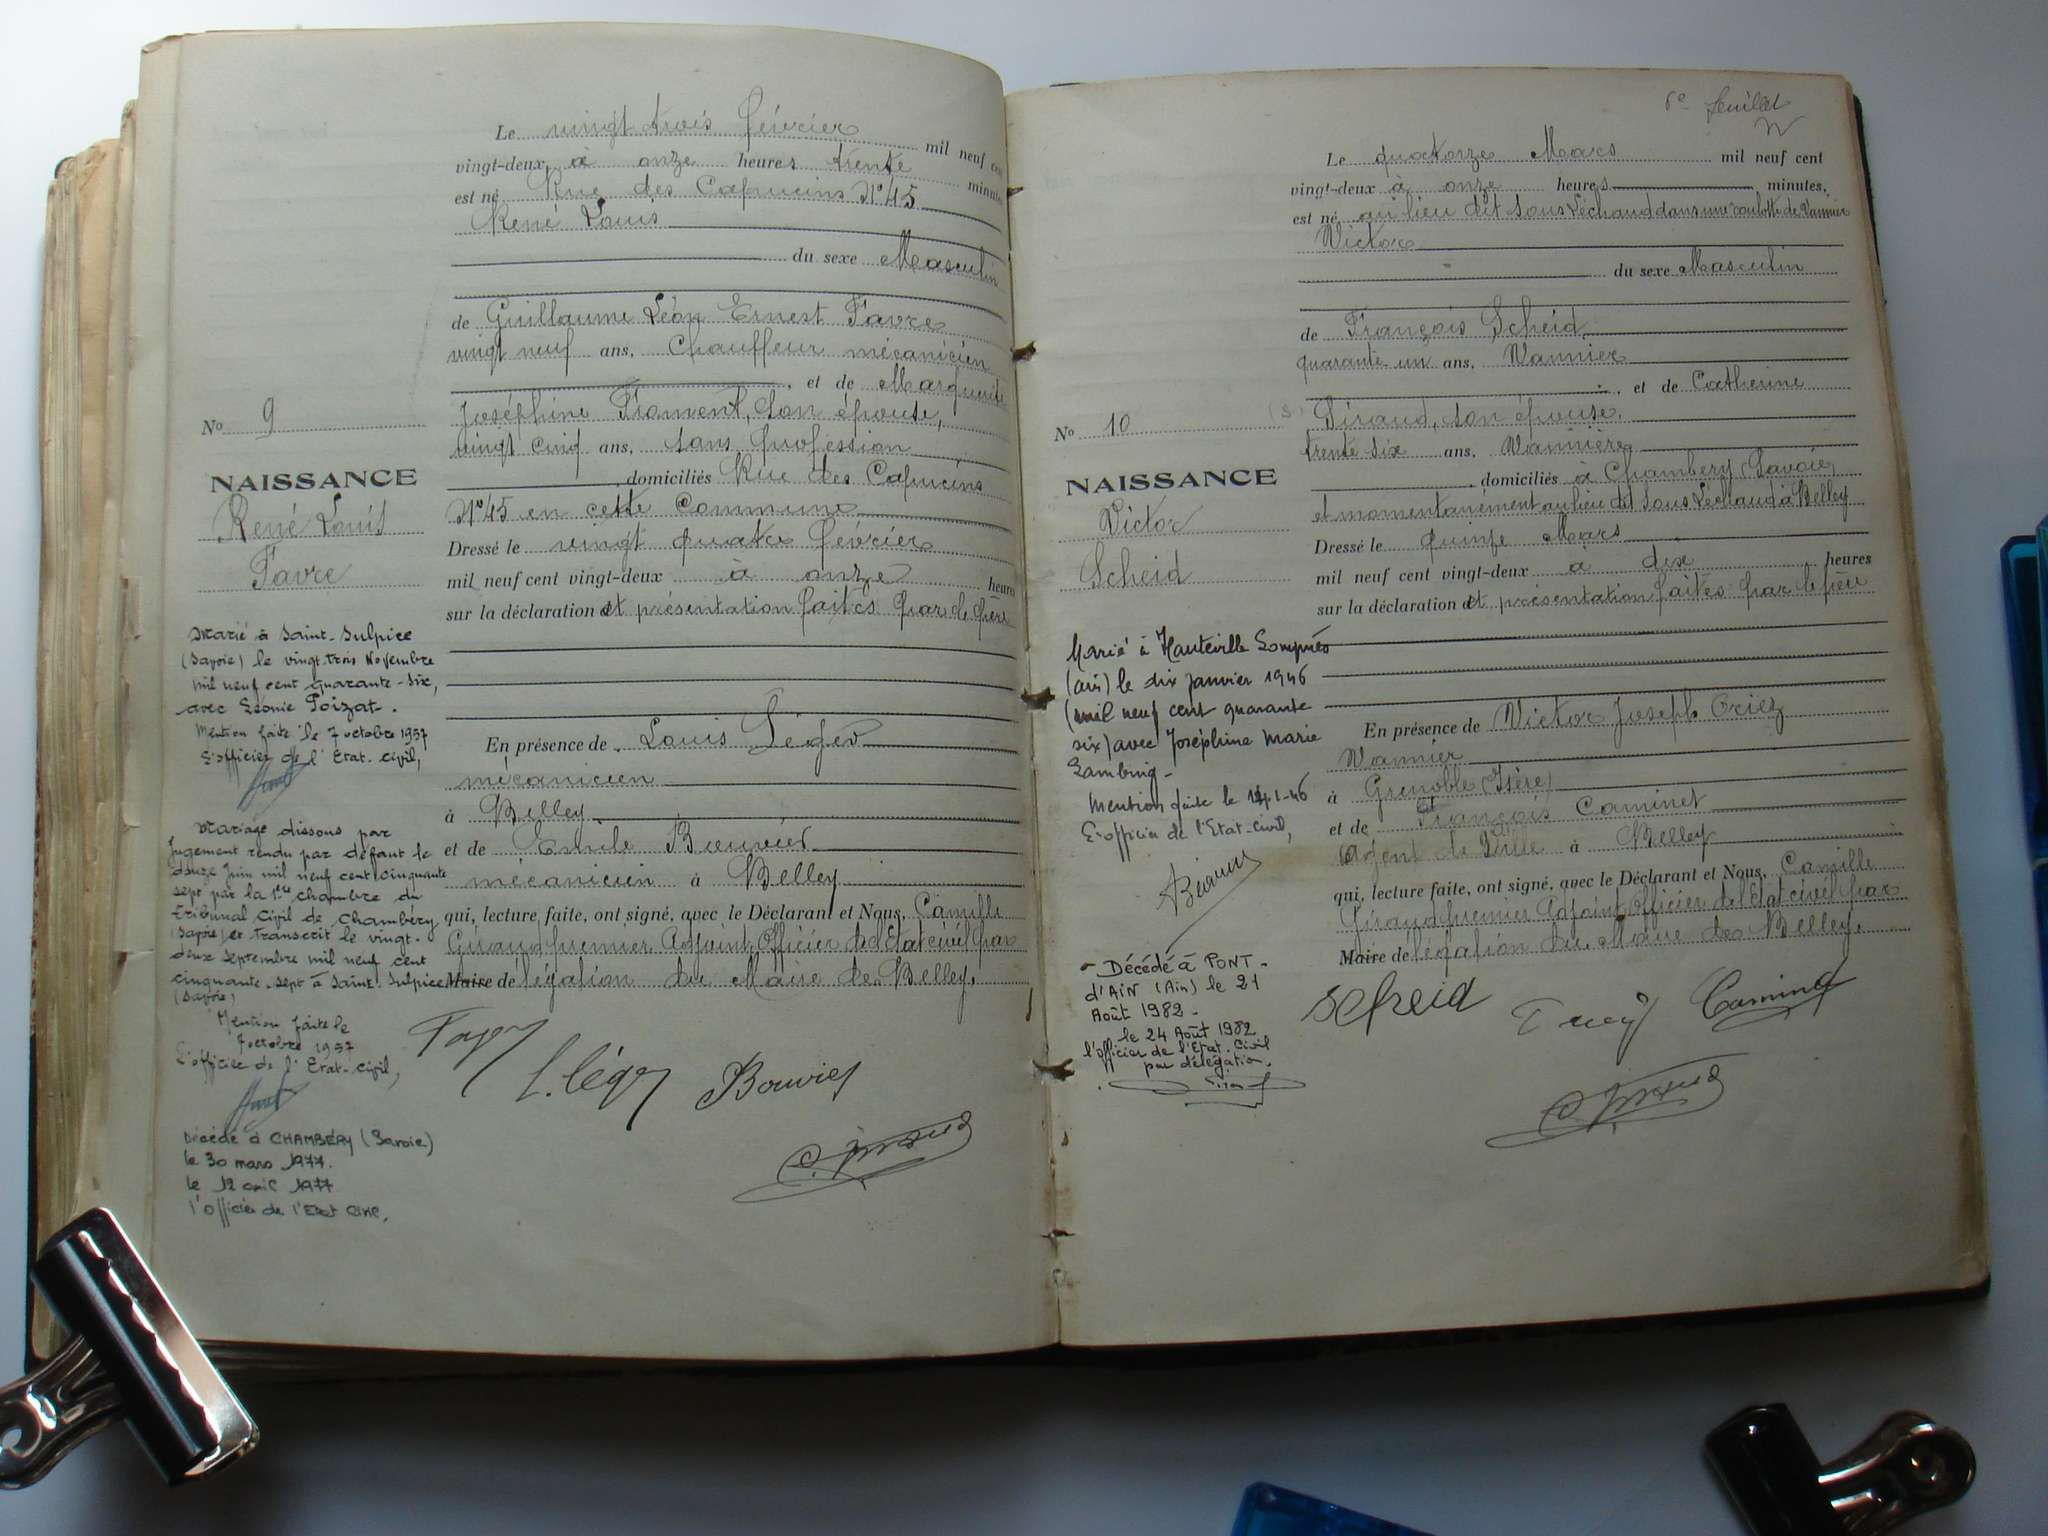 Le vingt trois février mil neuf cen
vingt-deux à onze heures trente minutes
est né Rue des Capucins N° 45
René Louis
du sexe Masculin
de Guillaume Léon Ernest Favre
vingt neuf ans, Chauffeur mécanicien
, et de Marguerite
Joséphine Froment, son épouse,
vingt cinq ans, sans profession
, domiciliés Rue des Capucins
N° 45 en cette Commune
Dressé le vingt quatre février
mil neuf cent vingt-deux à onze heures
sur la déclaration et présentation faites par le père
En présence de Louis Léger
mécanicien
à Belley
et de Emile Bouvier
mécanicien à Belley
qui, lecture faite, ont signé, avec le Déclarant et Nous, Camille
Giraud premier Adjoint, Officier de l'état civil par
Maire de légation du Maire de Belley.
L. Léger Bouvier
C. Giraud
No 9
NAISSANCE
René Louis
Favre
Marié à Saint-Sulpice
(Savoie) le vingt-trois Novembre
mil neuf cent quarante-six,
avec Léonie Poizat.
Mention faite le 7 octobre 1957
L'officier de l'Etat-civil,
Mariage dissous par
jugement rendu par défaut le
douze Juin mil neuf cent cinquante
sept par la 1ère chambre du
Tribunal Civil de Chambéry
(Savoie) et transcrit le vingt-
deux septembre mil neuf cent
cinquante-sept à Saint-Sulpice
(Savoie)
Mention faite le
7 octobre 1957
L'officier de l'Etat-civil,
Décédé à CHAMBÉRY (Savoie)
le 30 mars 1977.
le 12 avril 1977
l'officier de l'Etat Civil,
6e feuillet
Le quatorze Mars mil neuf cent
vingt-deux à onze heures minutes,
est né au lieu dit sous Léchaud dans une roulotte de Vannier
Victor
du sexe Masculin
de François Scheid
quarante un ans, Vannier
, et de Catherine
Giraud, son épouse,
trente six ans, Vannière
, domiciliés à Chambéry (Savoie)
et momentanément au lieu dit sous Léchaud à Belley
Dressé le quinze Mars
mil neuf cent vingt-deux à dix heures
sur la déclaration et présentation faites par le père
En présence de Victor Joseph
Vannier
à Grenoble (Isère)
et de François Caminet
Agent de Ville à Belley
qui, lecture faite, ont signé, avec le Déclarant et Nous, Camille
Giraud premier Adjoint, Officier de l'état civil par
Maire de légation du Maire de Belley.
Scheid Caminet
C. Giraud
No 10
NAISSANCE
Victor
Scheid
Marié à Hauteville Lompnès
(ain) le dix janvier 1946
(mil neuf cent quarante
six) avec Joséphine Marie
Mention faite le
L'officier de l'Etat-civil,
Décédé à PONT-
d'AIN (Ain) le 21
Août 1982 -
le 24 Août 1982
l'officier de l'Etat-Civil
par délégation.